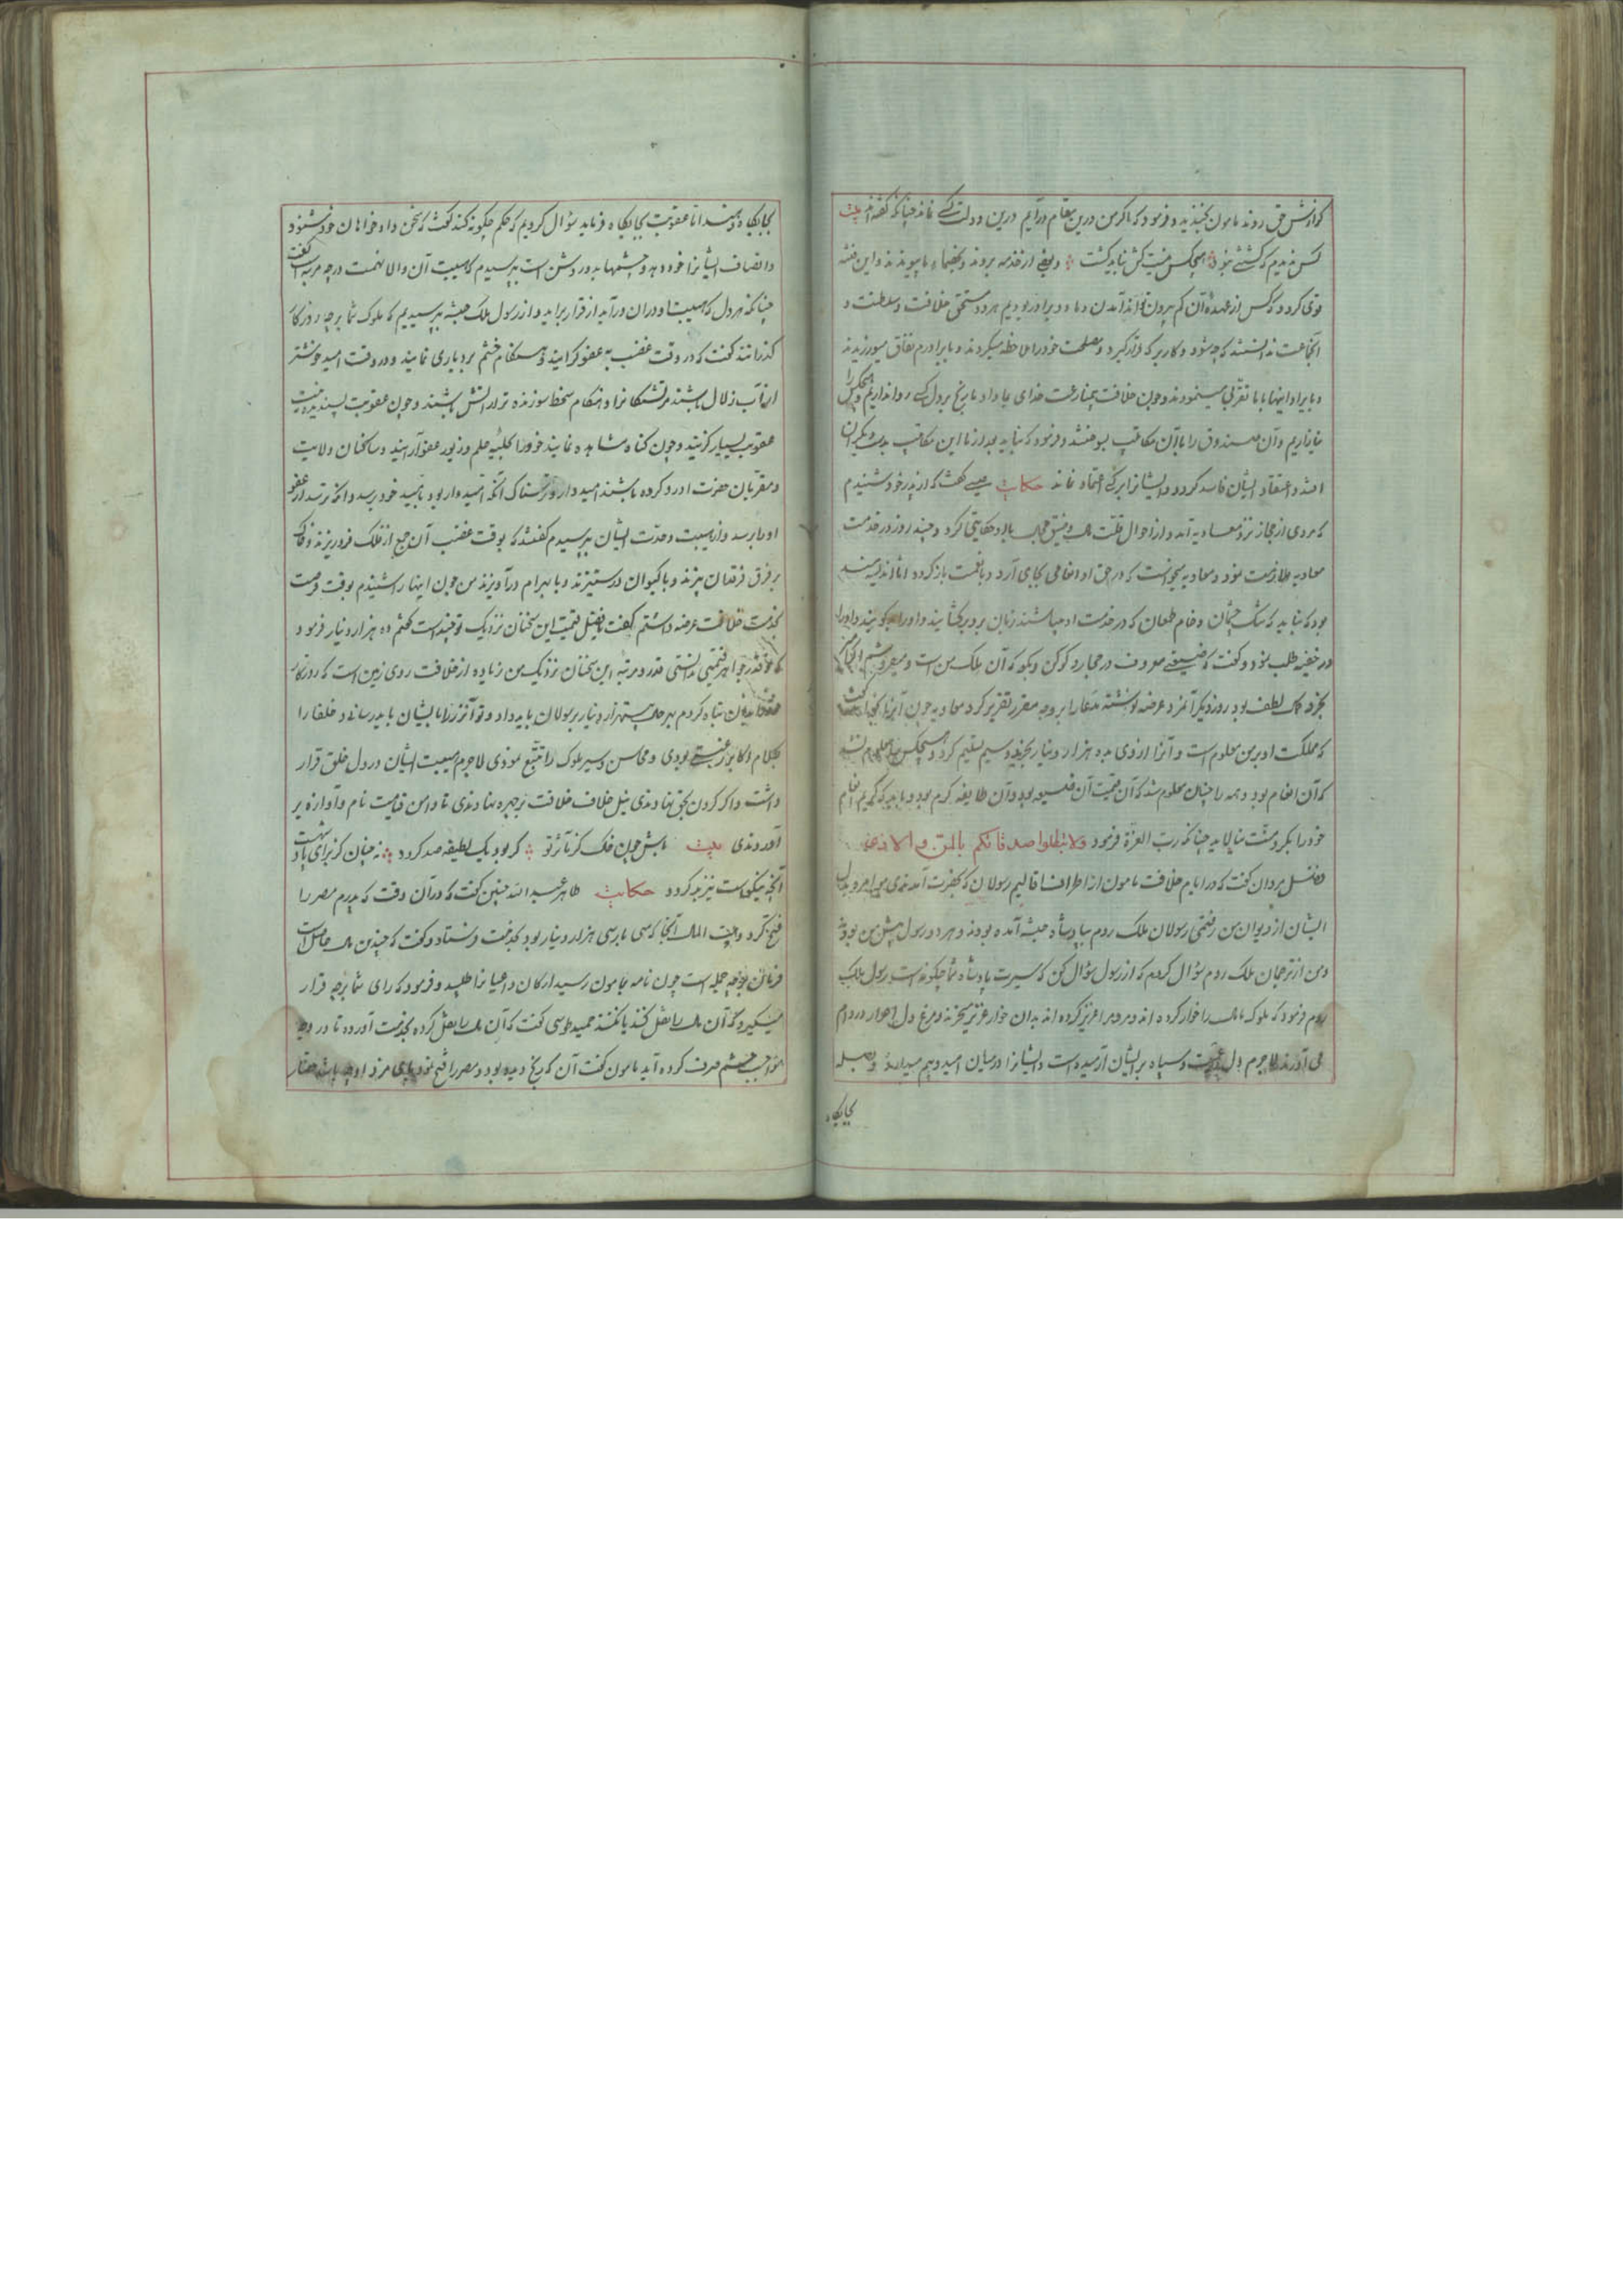 گوارش حق روند مامون بخندید و فرمود که اگر من درین مقام درآیم درین دولت کسی نماند چنانکه گفته‌اند بیت
کس ندیدم که کشتنی نبود هیچکس نیست کش نباید کشت و بعضی از خدمه بروند و بخصما ما پیوندند و این فتنه
قوی گردد و کس از عهده آن کم بیرون تواند آمدن و ما دو برادر بودیم هر دو مستحق خلافت و سلطنت و
انجماعت ندانستند که چه شود و کار بر که قرار گیرد و مصلحت خود را ملاحظه میکردند و با برادرم نفاق میورزیدند
و با برادر اینها با ما تقرب مینمودند و چون خلافت بیمنازعت خدای بما داد ما رنج بر دل کسی روا نداریم و هیچکس را
نیازاریم و آن صندوق را با آن مکاتیب بسوختند و فرمود که نباید بعد از ما این مکاتیب بدست دیگران
افتد و اعتقاد ایشان فاسد گردد و ایشانرا بر کسی اعتماد نماند حکایت عیسی گفت که از پدر خود شنیدم
که مردی از حجاز نزد معاویه آمد و از احوال قلت مال و ضیق مجال با او حکایتی کرد و چند روز در خدمت
معاویه ملازمت نمود و معاویه میخواست که در حق او انعامی بجای آرد و با نعمت بازگردد اما اندیشه‌مند
بود که نباید که تنگ چشمان و خام طمعان که در خدمت او میباشند زبان برو بر گشایند و او را بد گویند و او را
در خفیه طلب نمود و گفت که ضیعتی معروف در حجاز ذکر کن و بگو که آن ملک من است و میفروشم اگر امیر
بخرد کمال لطف بود روز دیگر آنمرد عرضه نوشته مدعا را بر وجه مقرر تقریر کرد معاویه چون آنرا بخواند گفت
که مملکت او بر من معلوم است و آنرا از وی بده هزار دینار بخرید و سیم تسلیم کرد و هیچکس را معلوم نشد
که آن انعام بود و همه را چنان معلوم شد که آن قیمت آن ضیعه بود و آن طایفه کرم بود و باید که کریم انعام
خود را بکرو منت نیالاید چنانکه رب العزة فرمود ولا تبطلوا صدقاتکم بالمن و الاذی
فضل مروان گفت که در ایام خلافت مامون از اطراف اقالیم رسولان که بحضرت آمدندی
ایشان از دیوان من رفتی رسولان ملک روم با پادشاه حبشه آمده بودند و هر دو رسول پیش من بودند
و من از ترجمان ملک روم سؤال کردم که از رسول سؤال کن که سیرت پادشاه شما چگونه است رسول ملک
روم فرمود که ملوک ما مال را خوار کرده اند و مرد را عزیز کرده اند بدان خوار عزیز میخرند و مرغ دل احرار در دام
می آورند لاجرم دل رعیت و سپاه بر ایشان آرمیده است و ایشانرا در میان امید و بیم میدارند و صله
بجایگاه
بجایگاه دهند اما عقوبت بجایگاه فرماید سؤال کردیم که حکم چگونه کند گفت که سخن دادخواهان خود شنود
و انصاف ایشانرا خود دهد و چشمها بدو روشن است پرسیدم که هیبت آن والا نهمت در چه مرتبه است گفت
چنانکه هر دل که هیبت او در ان درآید از قرار براید و از رسول ملک حبشه پرسیدیم که ملوک شما بر چه روزگار
گذرانند گفت که در وقت غضب به عفو گرایند و هنگام خشم بردباری نمایند و در وقت امید خوشتر
از آب زلال باشند مر تشنگانرا و هنگام سخط سوزنده تر از آتش باشند و چون عقوبت پسندیده نیست
عقوبت بسیار گزینند و چون گناه مشاهده نمایند خود را بحلیه حلم و زیور عفو آرایند و ساکنان ولایت
و مقربان حضرت او دو گروه باشند امیدوار و ترسناک آنکه امیدوار بود بامید خود برسد و انکه ترسد از عفو
او را برسد و از هیبت و حدت ایشان پرسیدم گفتند که بوقت غضب آن جمع از فلک فرو ریزند و خاک
بر فرق فرقدان بیزند و با کیوان در ستیزند و با بهرام درآویزند من چون اینها را شنیدم بوقت فرصت
بخدمت خلافت عرضه داشتم گفت یا فضل قیمت این سخنان نزدیک تو چند است گفتم ده هزار دینار فرمود
که تو قدر جواهر قیمتی ندانستی قدر و مرتبه این سخنان نزدیک من زیاده از خلافت روی زمین است که روزگار
تباه کردم بهر حال بیست هزار دینار بر رسولان باید داد و تو آنزر را بایشان باید رسانی و خلفا را
بکلام اکابر رغبت بودی و محاسن و سیر ملوک را تتبع نمودی لاجرم هیبت ایشان در دل خلق قرار
داشت و اگر گردن بحق نهادندی نیل خلاف خلافت بر چهره نهادندی تا دامن قیامت نام و آوازه بر
آوردندی بیت باش چون فلک کز تأثر تو گر بود یک لطیفه صد گردد نه چنان کز برای پاد شهت
آنچه نیکوست نیز بد گردد حکایت طاهر عبدالله چنین گفت که در آن وقت که پدرم مصر را
فتح کرد و بیت المال آنجا که سی بار سی هزار دینار بود بخدمت فرستاد و گفت که چندین مال حاصل است
فرمان بچه جمله است چون نامه بمامون رسید ارکان و اعیانرا طلبید و فرمود که رای شما بر چه قرار
میگیرد که آن مال را نقل کنند یا نکنند حمید طوسی گفت که آن مال را نقل کرده بخدمت آورده تا در وجه
مواجب حشم صرف کرده آید مامون گفت آن که رنج دیده بود و مصر را فتح نمود